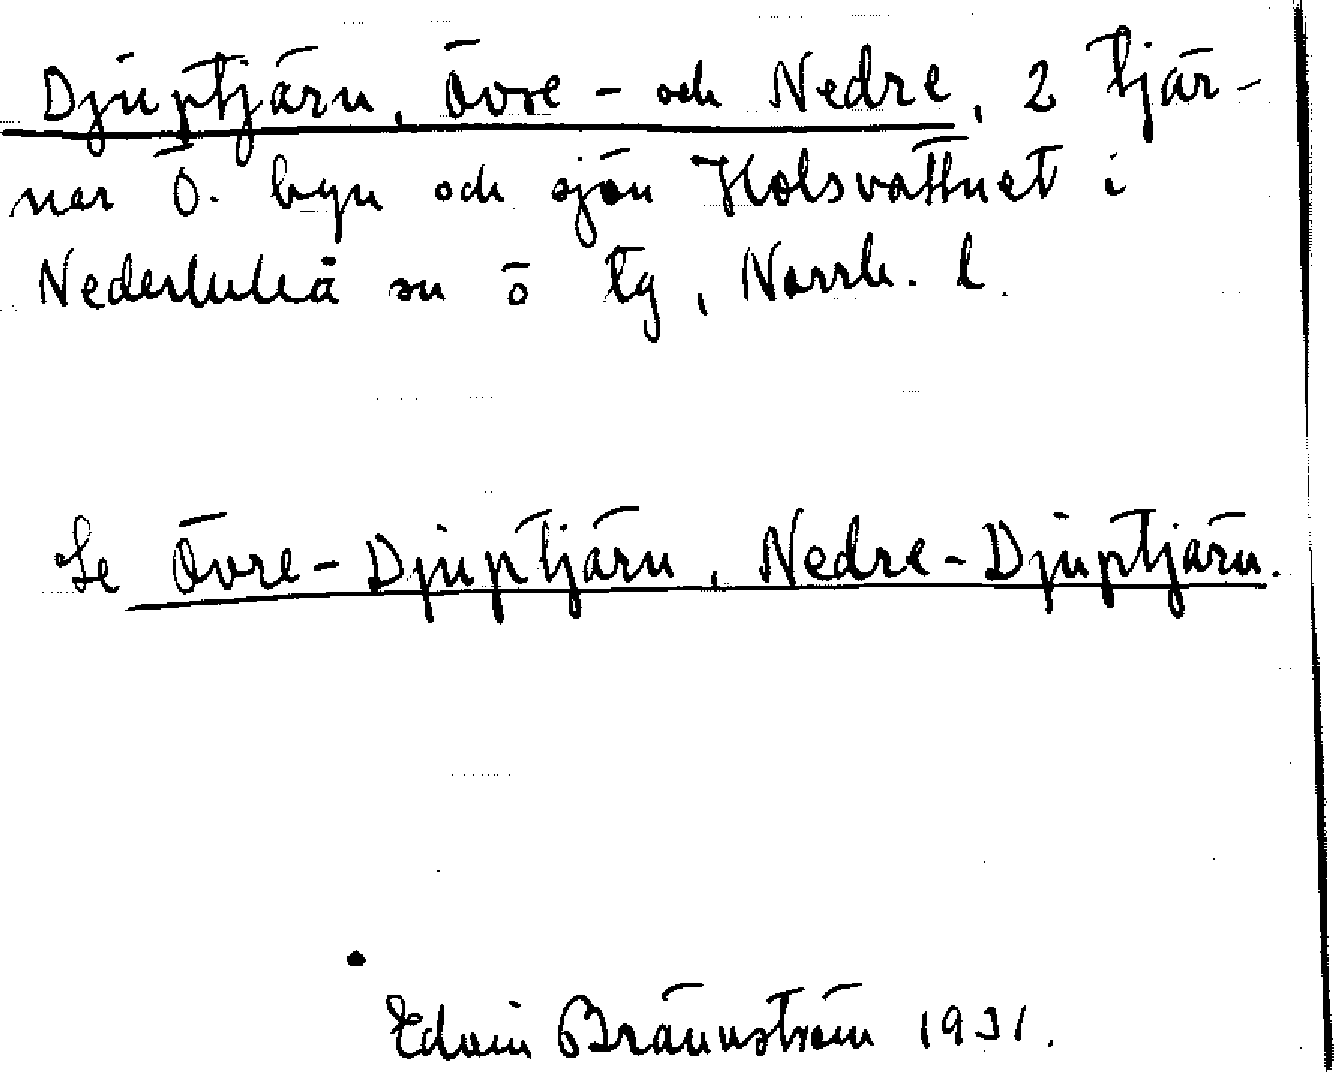 Djuptjärn, Övre- och Nedre, 2 tjär-
nar Ö. byn och sjön Holsvattnet i
Nederluleå sn ö tg, Norrb. l.
Se Övre-Djuptjärn, Nedre-Djuptjärn.
Edvin Brännström 1931.